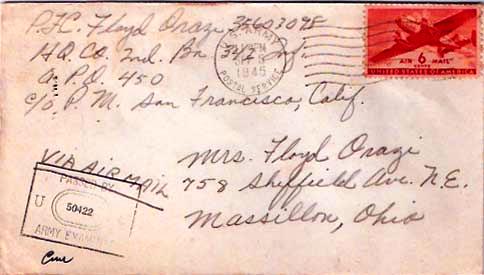 P.F.C. Floyd Orazi 35603098
HQ. Co. 2nd. Bn. Inf.
A.P.O. 450
c/o P. M. San Francisco, Calif.
U.S. ARMY
1945
POSTAL SERVICE
AIR 6 MAIL
CENTS
UNITED STATES OF AMERICA
VIA AIR MAIL
Mrs. Floyd Orazi
758 Sheffield Ave. N.E.
Massillon, Ohio
PASSED BY
U 50422
ARMY EXAMINER